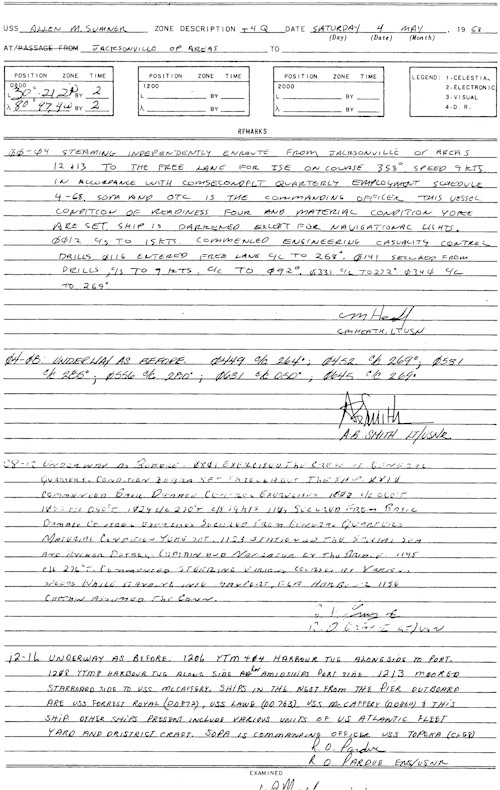 USS ALLEN M. SUMNER ZONE DESCRIPTION +4Q DATE SATURDAY 4 MAY, 1968
(Day) (Date) (Month)
AT/PASSAGE FROM JACKSONVILLE OP AREAS TO
POSITION ZONE TIME
0800
L 30° 21.2N BY 2
λ 80° 47.4W BY 2
POSITION ZONE TIME
1200
L BY
λ BY
POSITION ZONE TIME
2000
L BY
λ BY
LEGEND: 1-CELESTIAL
2-ELECTRONIC
3-VISUAL
4-D. R.
REMARKS
00-04 STEAMING INDEPENDENTLY ENROUTE FROM JACKSONVILLE OP AREAS
12 & 13 TO THE FREE LANE FOR ISE ON COURSE 358° SPEED 9 KTS.
IN ACCORDANCE WITH COMSECONDFLT QUARTERLY EMPLOYMENT SCHEDULE
4-68. SOPA AND OTC IS THE COMMANDING OFFICER THIS VESSEL
CONDITION OF READINESS FOUR AND MATERIAL CONDITION YOKE
ARE SET. SHIP IS DARKENED EXCEPT FOR NAVIGATIONAL LIGHTS.
0012 C/S TO 15 KTS. COMMENCED ENGINEERING CASUALITY CONTROL
DRILLS. 0116 ENTERED FREE LANE C/C TO 268°. 0141 SECURED FROM
DRILLS, C/S TO 9 KTS, C/C TO 092°. 0331 C/C TO 272° 0344 C/C
TO 269°
CM HEATH, LT USN
04-08 UNDERWAY AS BEFORE. 0449 C/C 264°; 0452 C/C 269°; 0531
C/C 285°; 0556 C/C 280°; 0631 C/C 050°; 0645 C/C 269°
A B SMITH LT/USNR
08-12 UNDERWAY AS BEFORE. EXERCISED THE CREW AT GENERAL
QUARTERS. CONDITION ZEBRA SET THROUGHOUT THE SHIP 0818
COMMENCED BASIC DAMAGE CONTROL EXERCISES
C/C 270°T C/S 14 KTS SECURED FROM BASIC
DAMAGE CONTROL EXERCISES SECURED FROM GENERAL QUARTERS
MATERIAL CONDITION YOKE SET. 1123 STATIONED THE SPECIAL SEA
AND ANCHOR DETAIL, CAPTAIN AND NAVIGATOR ON THE BRIDGE. 1145
C/C 276°T. COMMENCED STEERING VARIOUS COURSES AT VARIOUS
SPEEDS WHILE STANDING INTO MAYPORT, FLA HARBOR. 1156
CAPTAIN ASSUMED THE CONN.
LT/USN
12-16 UNDERWAY AS BEFORE. 1206 YTM 404 HARBOUR TUG ALONGSIDE TO PORT.
1208 YTM HARBOUR TUG ALONG SIDE AMIDSHIPS PORT SIDE. 1213 MOORED
STARBOARD SIDE TO USS MCCAFFERY. SHIPS IN THE NEST FROM THE PIER OUTBOARD
ARE USS FORREST ROYAL (DD872), USS LAWE (DD763), USS MCCAFFERY (DD860) & THIS
SHIP. OTHER SHIPS PRESENT INCLUDE VARIOUS UNITS OF US ATLANTIC FLEET
YARD AND DRISTRICT CRAFT. SOPA IS COMMANDING OFFICER USS TOPEKA (CLG8)
R. O. Pardue
R. O. PARDUE ENS/USNR
EXAMINED